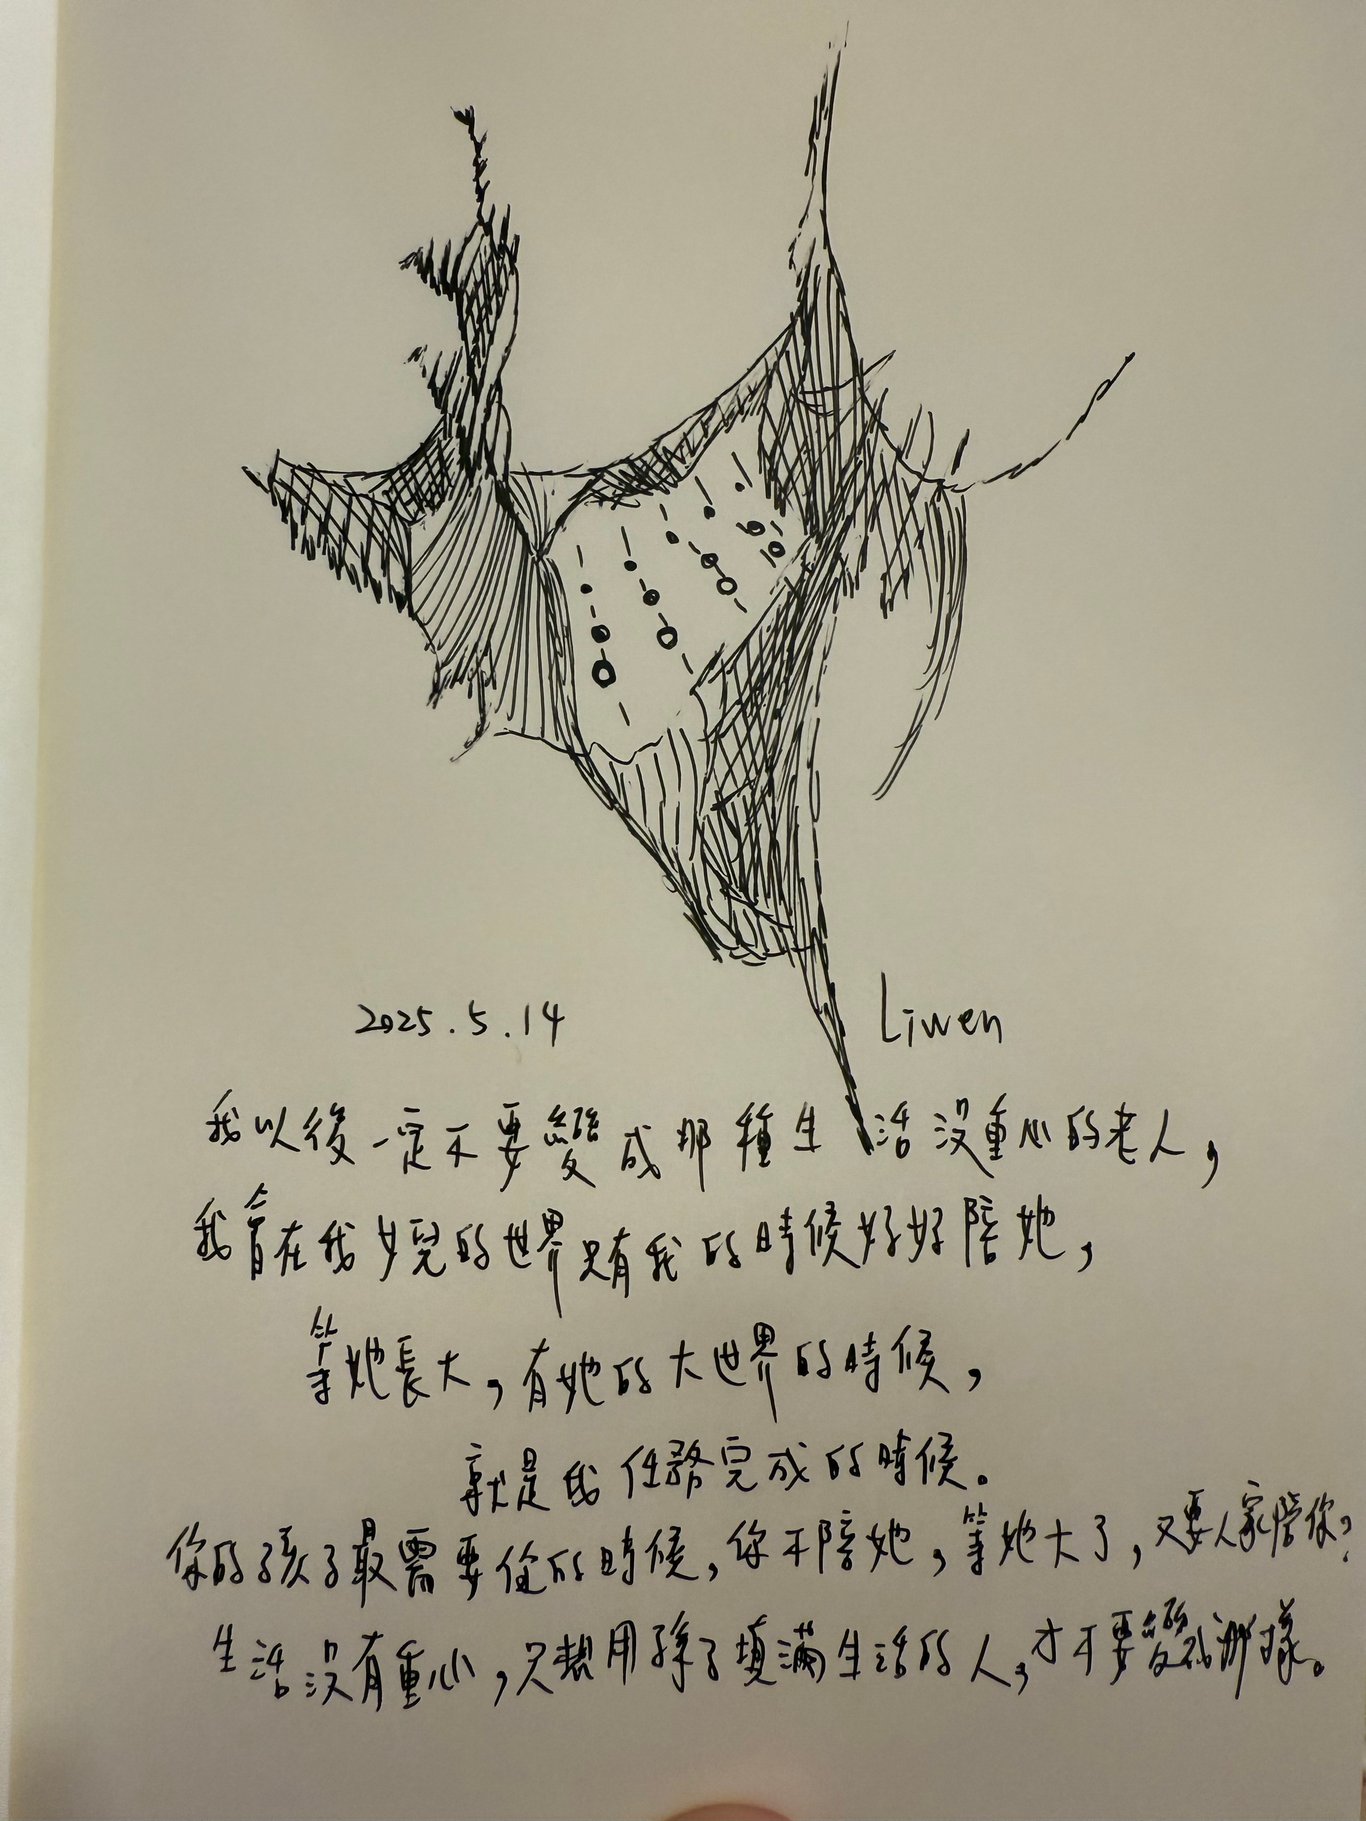 2025.5.14 Liwen
我以後一定不要變成那種生活沒重心的老人，
我會在我女兒的世界只有我的時候好好陪她，
等她長大，有她的大世界的時候，
就是我任務完成的時候。
你的孩子最需要你的時候，你不陪她，等她大了，又要人家陪你？
生活沒有重心，只想用孫子填滿生活的人，才不要變成那樣。